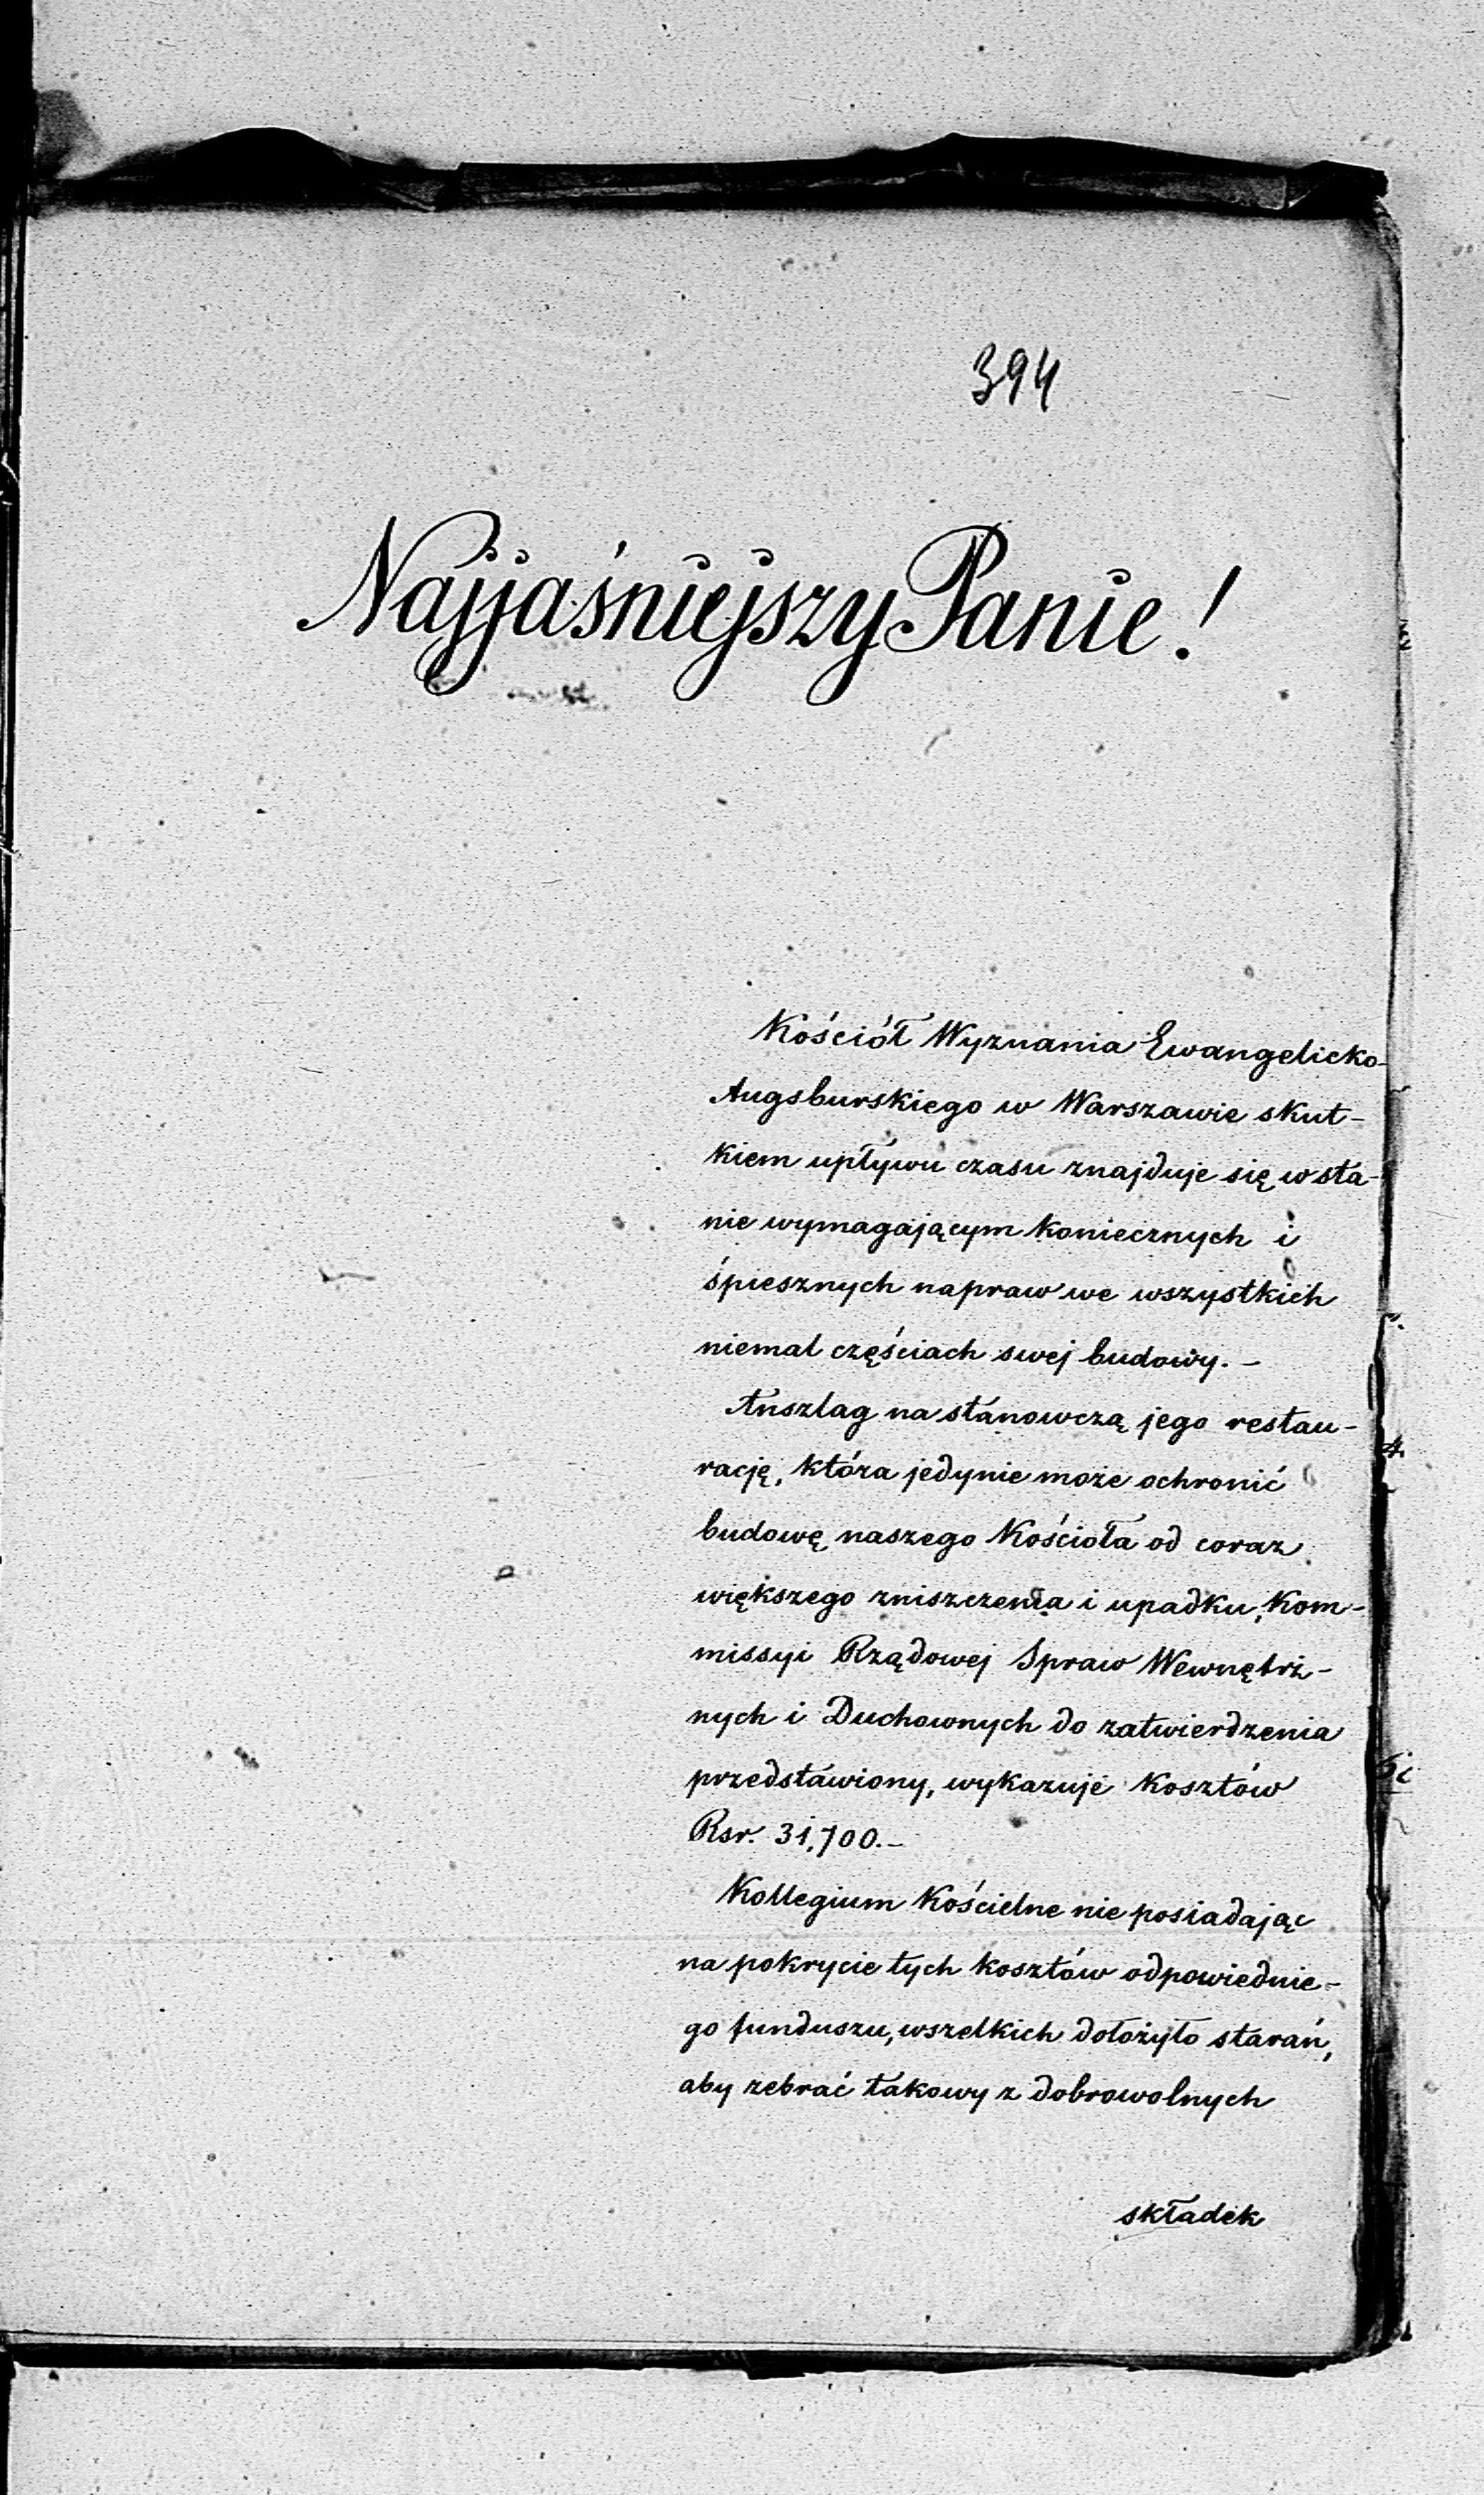 394
Najjaśniejszy Panie!
Kościół Wyznania Ewangelicko-
Augsburskiego w Warszawie skut-
kiem upływu czasu znajduje się w sta-
nie wymagającym koniecznych i
śpiesznych napraw we wszystkich
niemal częściach swej budowy. -
Anszlag na stanowczą jego restau-
rację, która jedynie może ochronić
budowę naszego Kościoła od coraz
większego zniszczenia i upadku, Kom-
missyi Rządowej Spraw Wewnętrz-
nych i Duchownych do zatwierdzenia
przedstawiony, wykazuje kosztów
Rsr. 31,700.-
Kollegium Kościelne nie posiadając
na pokrycie tych kosztów odpowiednie-
go funduszu, wszelkich dołożyło starań,
aby zebrać takowy z dobrowolnych
składek